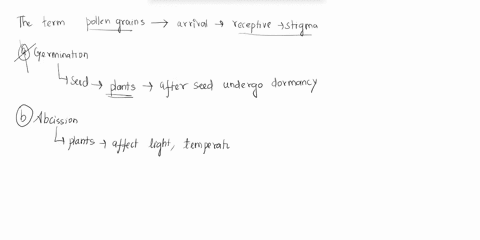 The term pollen grains → arrival → receptive → stigma
(a) Germination
↳ Seed → plants → after seed undergo dormancy
(b) Abcission
↳ plants → affect light, temperatu